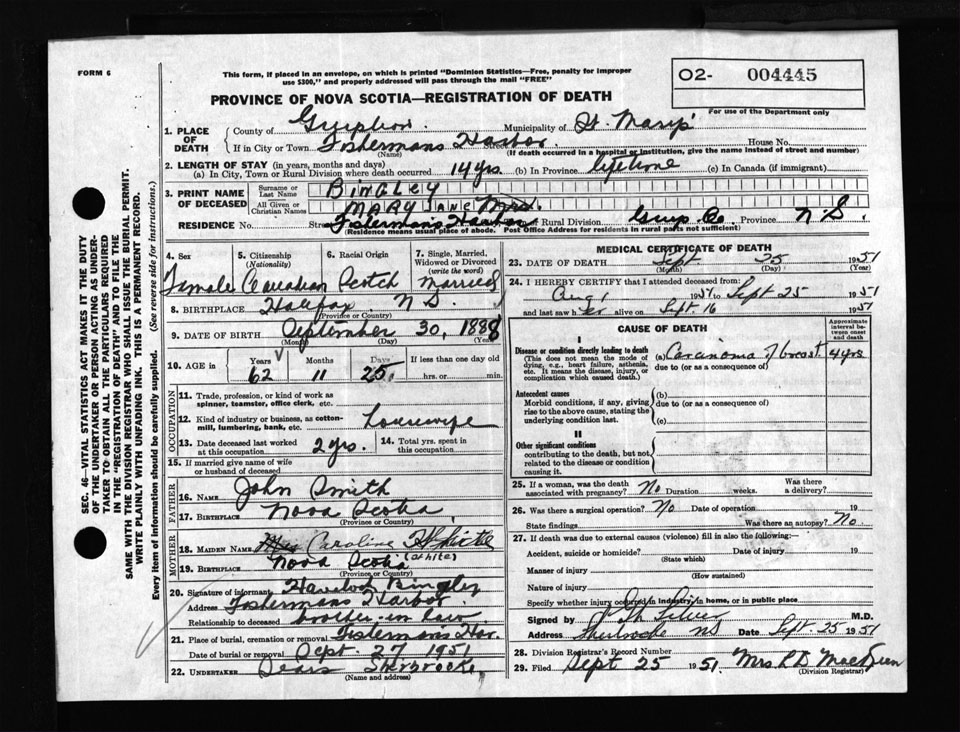 FORM 6
This form, if placed in an envelope, on which is printed "Dominion Statistics—Free, penalty for improper
use $300," and properly addressed will pass through the mail "FREE"
O2- 004445
For use of the Department only
PROVINCE OF NOVA SCOTIA—REGISTRATION OF DEATH
1. PLACE OF DEATH
County of Municipality of St. Marys'
If in City or Town Fishermans Harbor House No.
(Name) (If death occurred in a hospital or institution, give the name instead of street and number)
2. LENGTH OF STAY (in years, months and days)
(a) In City, Town or Rural Division where death occurred 14 yrs. (b) In Province lifetime (c) In Canada (if immigrant)
3. PRINT NAME OF DECEASED
Surname or Last Name BINGLEY
All Given or Christian Names MARY JANE Mrs.
RESIDENCE No. Fishermans Harbor or Rural Division Guys. Co. Province N S
(Residence means usual place of abode. Post Office Address for residents in rural parts not sufficient)
4. Sex
Female
5. Citizenship
(Nationality)
Canadian
6. Racial Origin
Scotch
7. Single, Married, Widowed or Divorced
(write the word)
Married
8. BIRTHPLACE Halifax N S.
(Province or Country)
9. DATE OF BIRTH September 30, 1888
(Month) (Day) (Year)
10. AGE in
Years Months Days If less than one day old
62 11 25 hrs. or min.
OCCUPATION
11. Trade, profession, or kind of work as
spinner, teamster, office clerk, etc.
12. Kind of industry or business, as cotton-
mill, lumbering, bank, etc. housewife
13. Date deceased last worked
at this occupation 2 yrs.
14. Total yrs. spent in
this occupation
15. If married give name of wife
or husband of deceased
FATHER
16. NAME John Smith
17. BIRTHPLACE Nova Scotia
(Province or Country)
MOTHER
18. MAIDEN NAME Caroline White
(White)
19. BIRTHPLACE Nova Scotia
(Province or Country)
20. Signature of informant Havelock Bingley
Address Fishermans Harbor
Relationship to deceased brother-in law
21. Place of burial, cremation or removal Fishermans Har.
Date of burial or removal Sept. 27 1951
22. UNDERTAKER Sherbrooke
(Name and address)
MEDICAL CERTIFICATE OF DEATH
23. DATE OF DEATH Sept 25 1951
(Month) (Day) (Year)
24. I HEREBY CERTIFY that I attended deceased from:
Aug 1 1951 to Sept 25 1951
and last saw her alive on Sept. 16 1951
CAUSE OF DEATH
Approximate interval between onset and death
I
Disease or condition directly leading to death
(This does not mean the mode of
dying, e.g., heart failure, asthenia,
etc. It means the disease, injury, or
complication which caused death.)
(a) Carcinoma of breast 4 yrs
due to (or as a consequence of)
Antecedent causes
Morbid conditions, if any, giving
rise to the above cause, stating the
underlying condition last.
(b)
due to (or as a consequence of)
(c)
II
Other significant conditions
contributing to the death, but not
related to the disease or condition
causing it.
25. If a woman, was the death
associated with pregnancy? No Duration weeks. Was there
a delivery?
26. Was there a surgical operation? No Date of operation 19
State findings Was there an autopsy? No
27. If death was due to external causes (violence) fill in also the following:—
Accident, suicide or homicide? Date of injury 19
(State which)
Manner of injury
(How sustained)
Nature of injury
Specify whether injury occurred in industry, in home, or in public place
Signed by M.D.
Address Sherbrooke NS Date Sept 25 1951
28. Division Registrar's Record Number
29. Filed Sept 25 1951. Mrs
(Division Registrar)
SEC. 46—VITAL STATISTICS ACT MAKES IT THE DUTY
OF THE UNDERTAKER OR PERSON ACTING AS UNDER-
TAKER TO OBTAIN ALL THE PARTICULARS REQUIRED
IN THE "REGISTRATION OF DEATH" AND TO FILE THE
SAME WITH THE DIVISION REGISTRAR WHO SHALL ISSUE THE BURIAL PERMIT.
WRITE PLAINLY WITH UNFADING INK. THIS IS A PERMANENT RECORD.
Every item of information should be carefully supplied. (See reverse side for instructions).